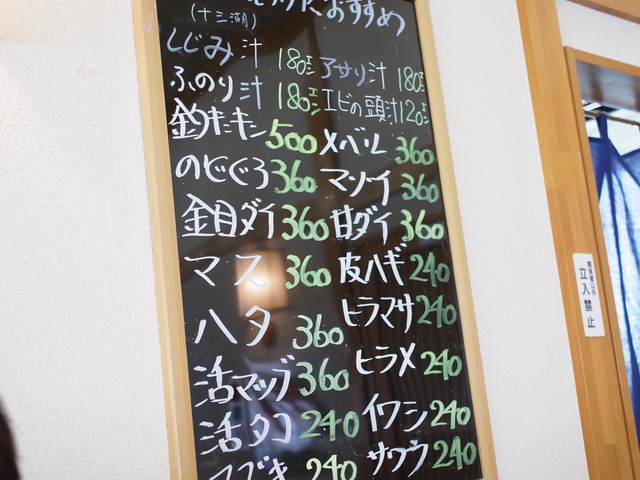 おすすめ
(十三湖)
しじみ汁 180エン
アサリ汁 180エン
ふのり汁 180エン
エビの頭汁 120エン
釣キンキン 500
メバル 360
のどぐろ 360
マゾイ 360
金目ダイ 360
甘ダイ 360
マス 360
皮ハギ 240
ハタ 360
ヒラマサ 240
活マツブ 360
ヒラメ 240
活タコ 240
イワシ 240
240
サワラ 240
関係者以外
立入禁止